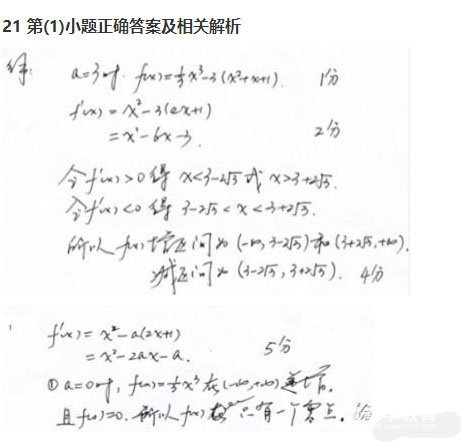 21 第(1)小题正确答案及相关解析
解: a=3时, f(x)=⅓x³-3(x²+x+1). 1分
f'(x)=x²-3(2x+1)
=x²-6x-3. 2分
令f'(x)>0得 x<3-2√3或 x>3+2√3.
令f'(x)<0得 3-2√3<x<3+2√3.
所以f(x)增区间为(-∞,3-2√3)和(3+2√3,+∞).
减区间为(3-2√3,3+2√3). 4分
f'(x)=x²-a(2x+1)
=x²-2ax-a. 5分
①a=0时, f(x)=⅓x³在(-∞,+∞)递增.
且f(0)=0. 所以f(x) 只有一个零点.